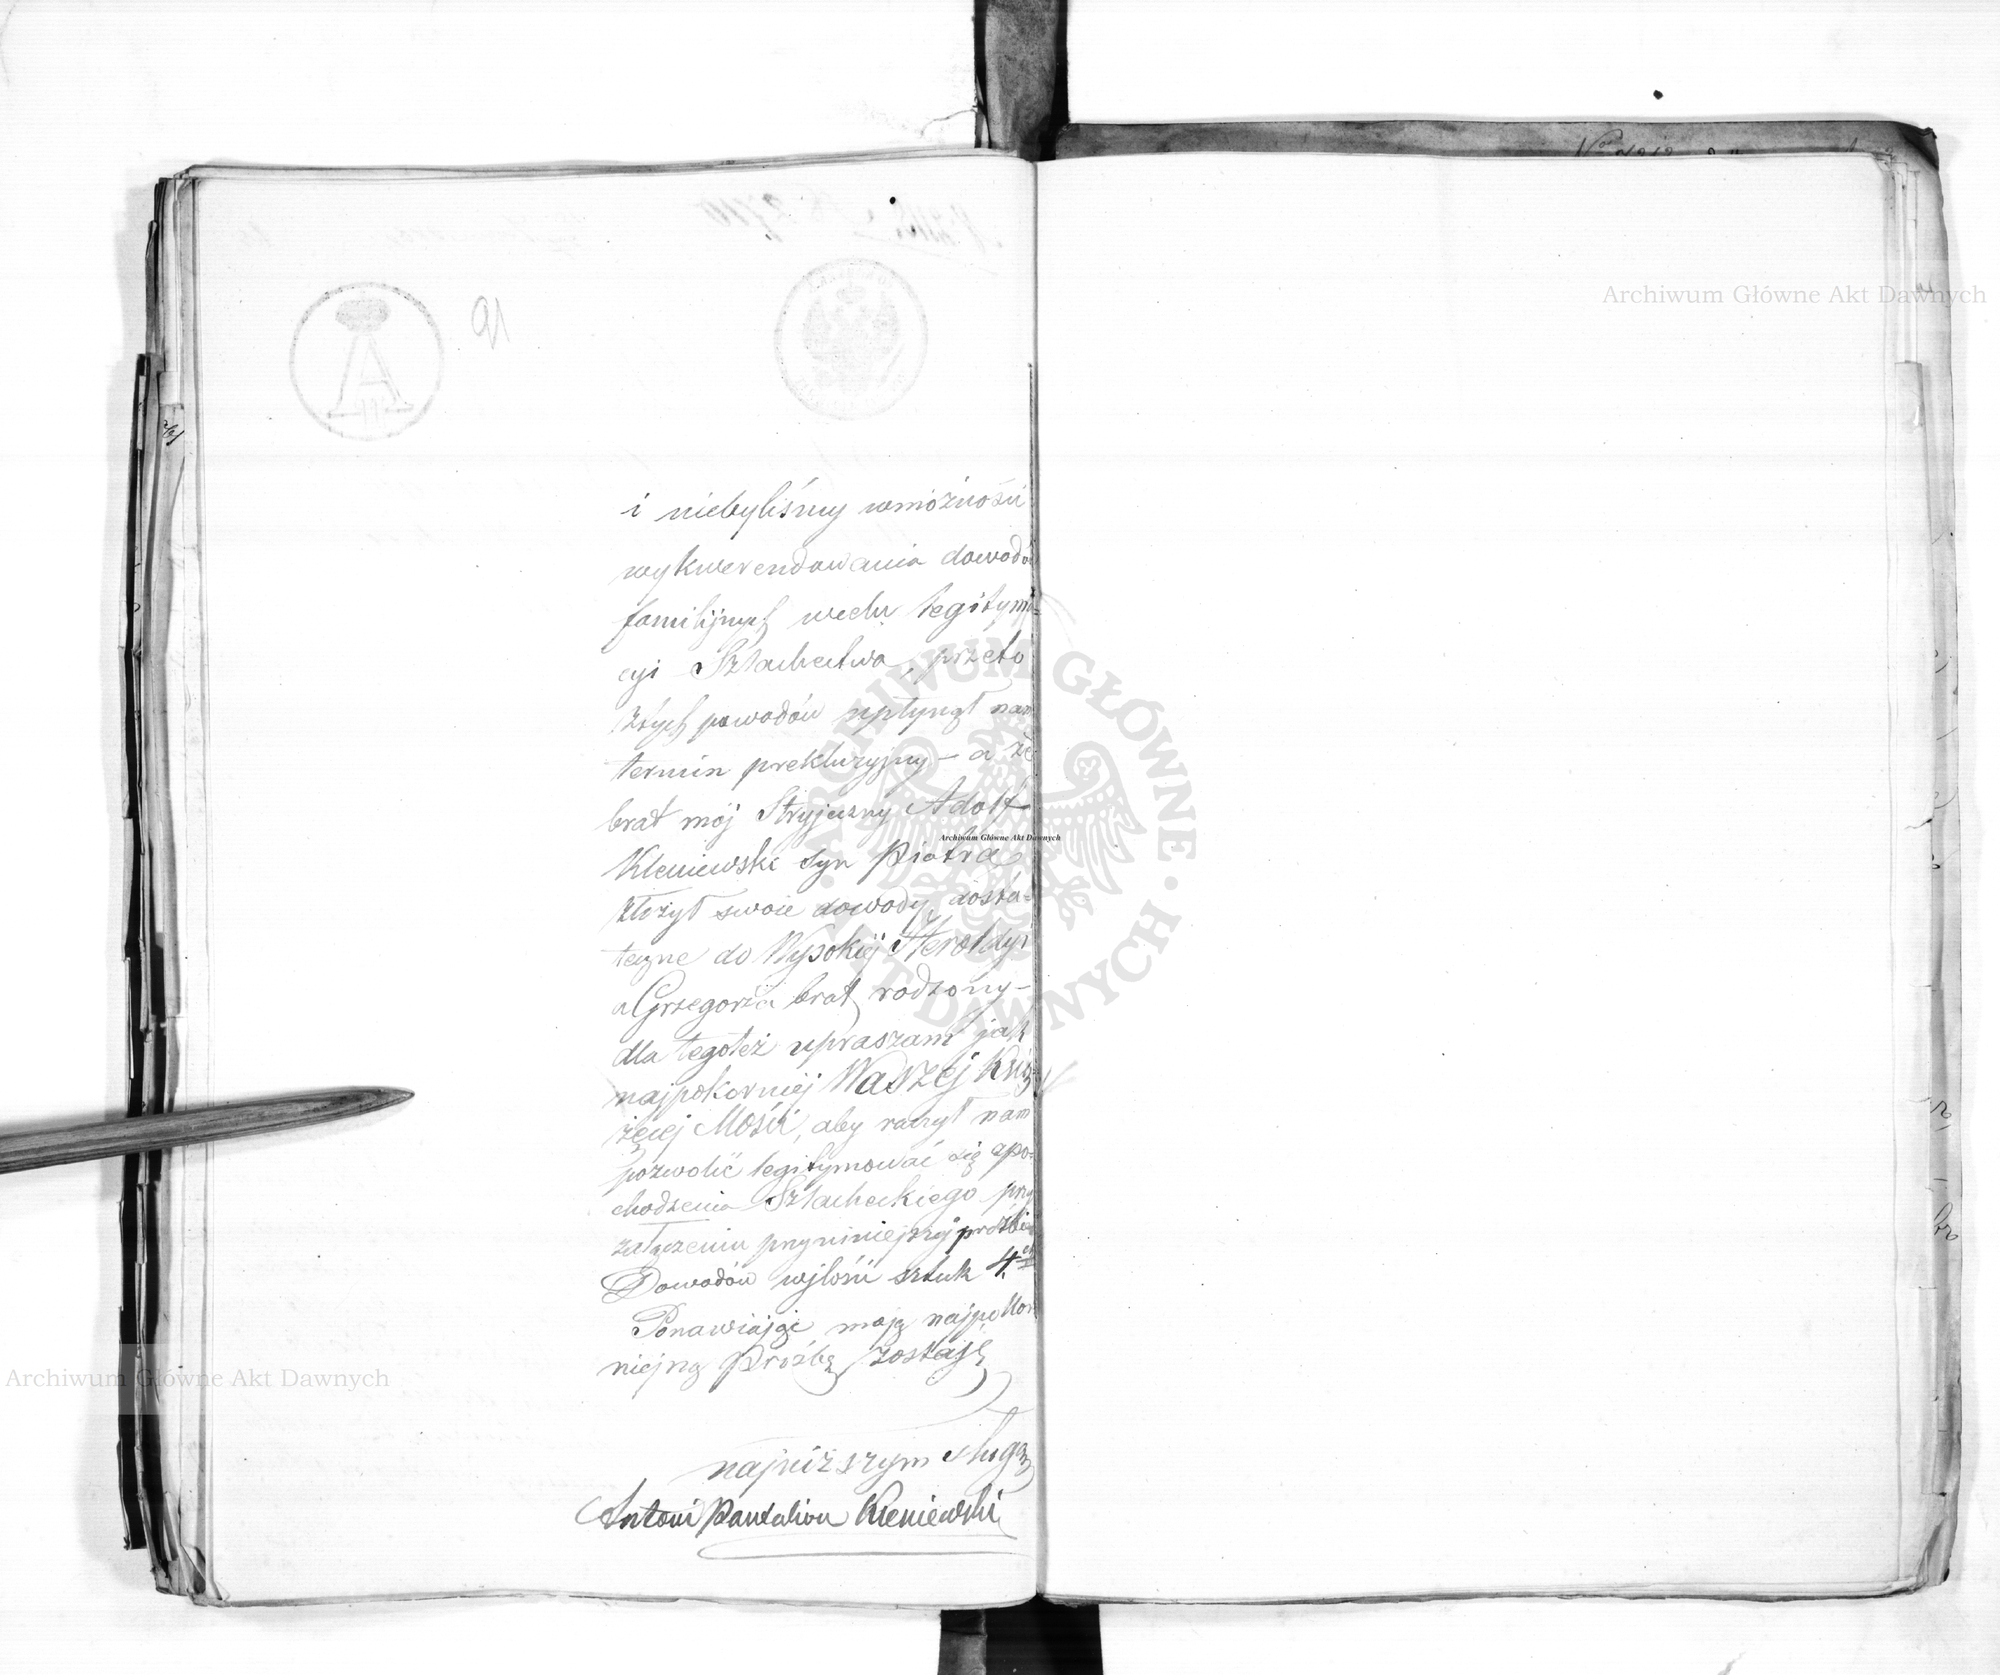 i niebyliśmy wmożności
wykwerendowania dowodó
familijnych wcelu legityma=
cyi Szlachectwa, przeto
ztych powodów upłynął nam
termin prekluzyjny – a że
brat mój Stryjeczny Adolf
Kleniewski syn Piotra
złożył swoie dowody dosta=
teczne do Wysokiéj Heroldyi
a Grzegorza brat rodzony –
dla tegoteż upraszam jak
najpokorniej Waszéj Ksią
żęcej Mości, aby raczył nam
pozwolić legitymować się zpo=
chodzenia Szlacheckiego przy
załączeniu przyniniejszéj prośbie
Dowodów wjlości sztuk 4.ch
Ponawiając moją najpokor
niejszą Prośbę zostaję
najniższym sługą
Antoni Pantalion Kleniewski
Archiwum Główne Akt Dawnych
Archiwum Główne Akt Dawnych
Archiwum Główne Akt Dawnych
ARCHIWUM GŁÓWNE AKT DAWNYCH